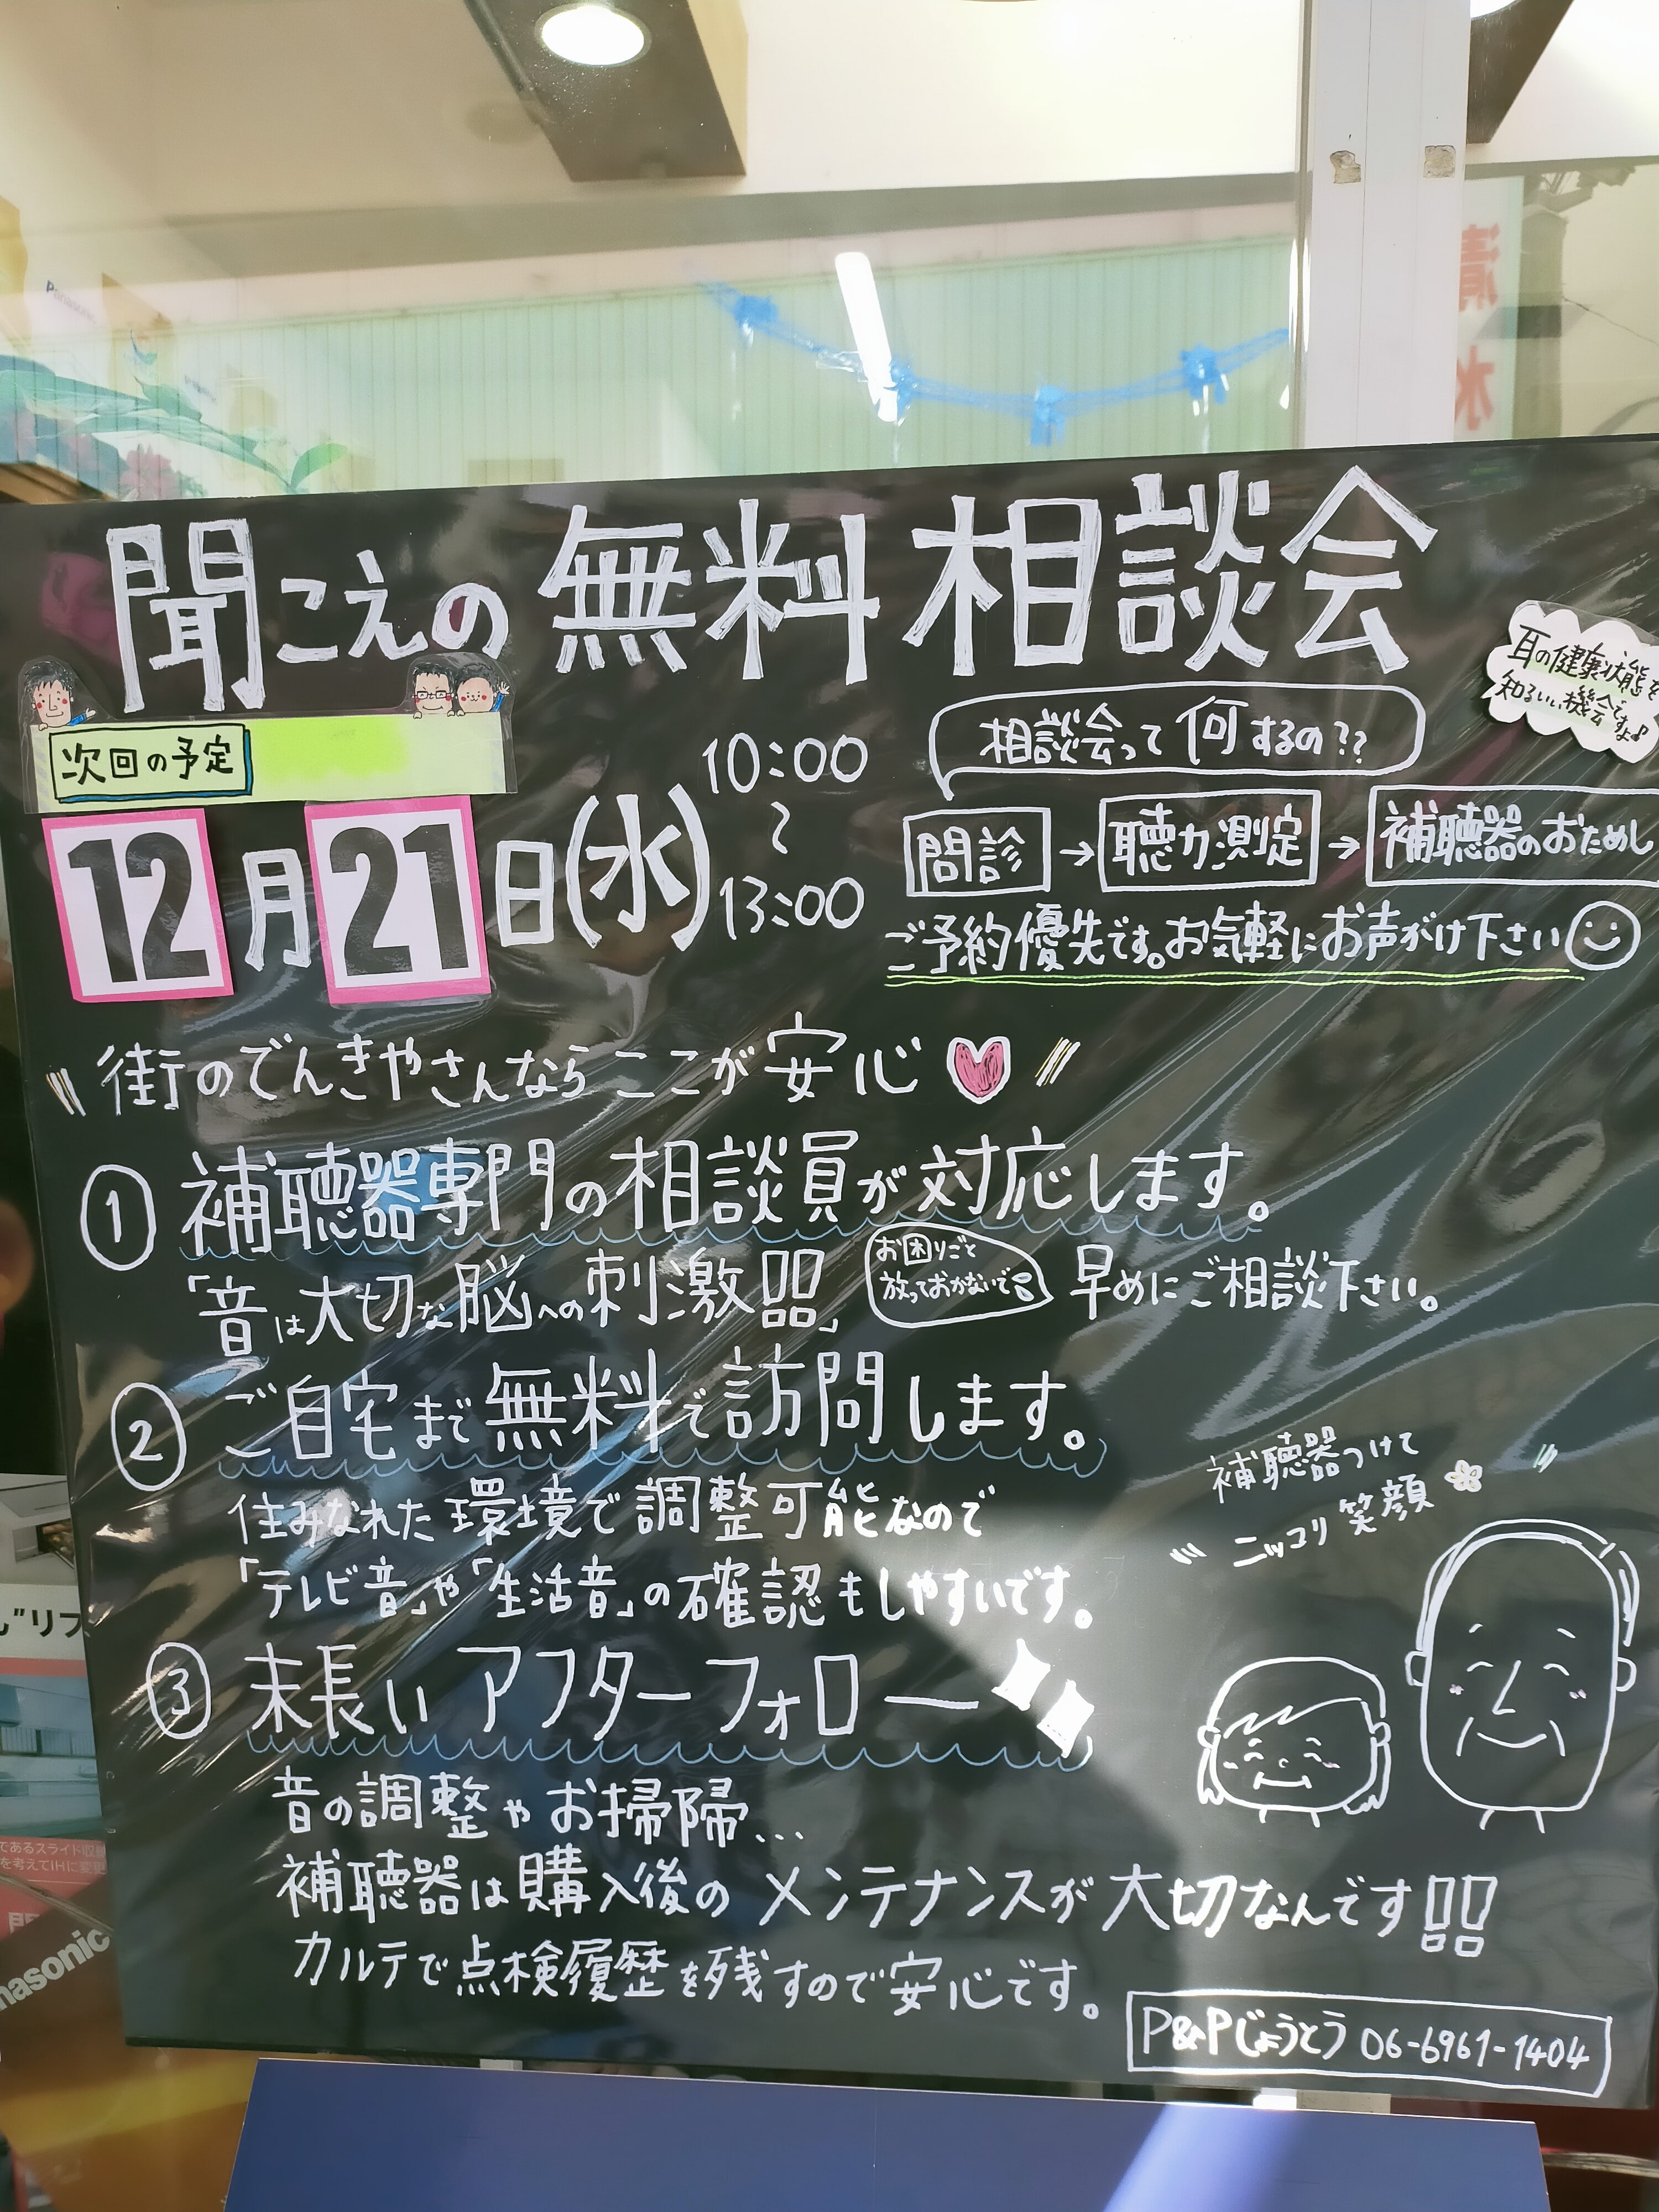 聞こえの無料相談会
耳の健康状態を
知るいい機会ですよ♪
次回の予定
12月21日(水)
10:00
〜
13:00
相談会って何するの??
問診→聴力測定→補聴器のおためし
ご予約優先です。お気軽にお声がけ下さい
街のでんきやさんならここが安心
① 補聴器専門の相談員が対応します。
「音は大切な脳への刺激!!」
お困りごと
放っておかないで
早めにご相談下さい。
② ご自宅まで無料で訪問します。
住みなれた環境で調整可能なので
「テレビ音」や「生活音」の確認もしやすいです。
補聴器つけて
ニッコリ笑顔
③ 末長いアフターフォロー
音の調整やお掃除...
補聴器は購入後のメンテナンスが大切なんです!!
カルテで点検履歴を残すので安心です。
P&Pじょうとう 06-6961-1404
清水
"リフ
であるスライド収
を考えてIHに変更
nasonic